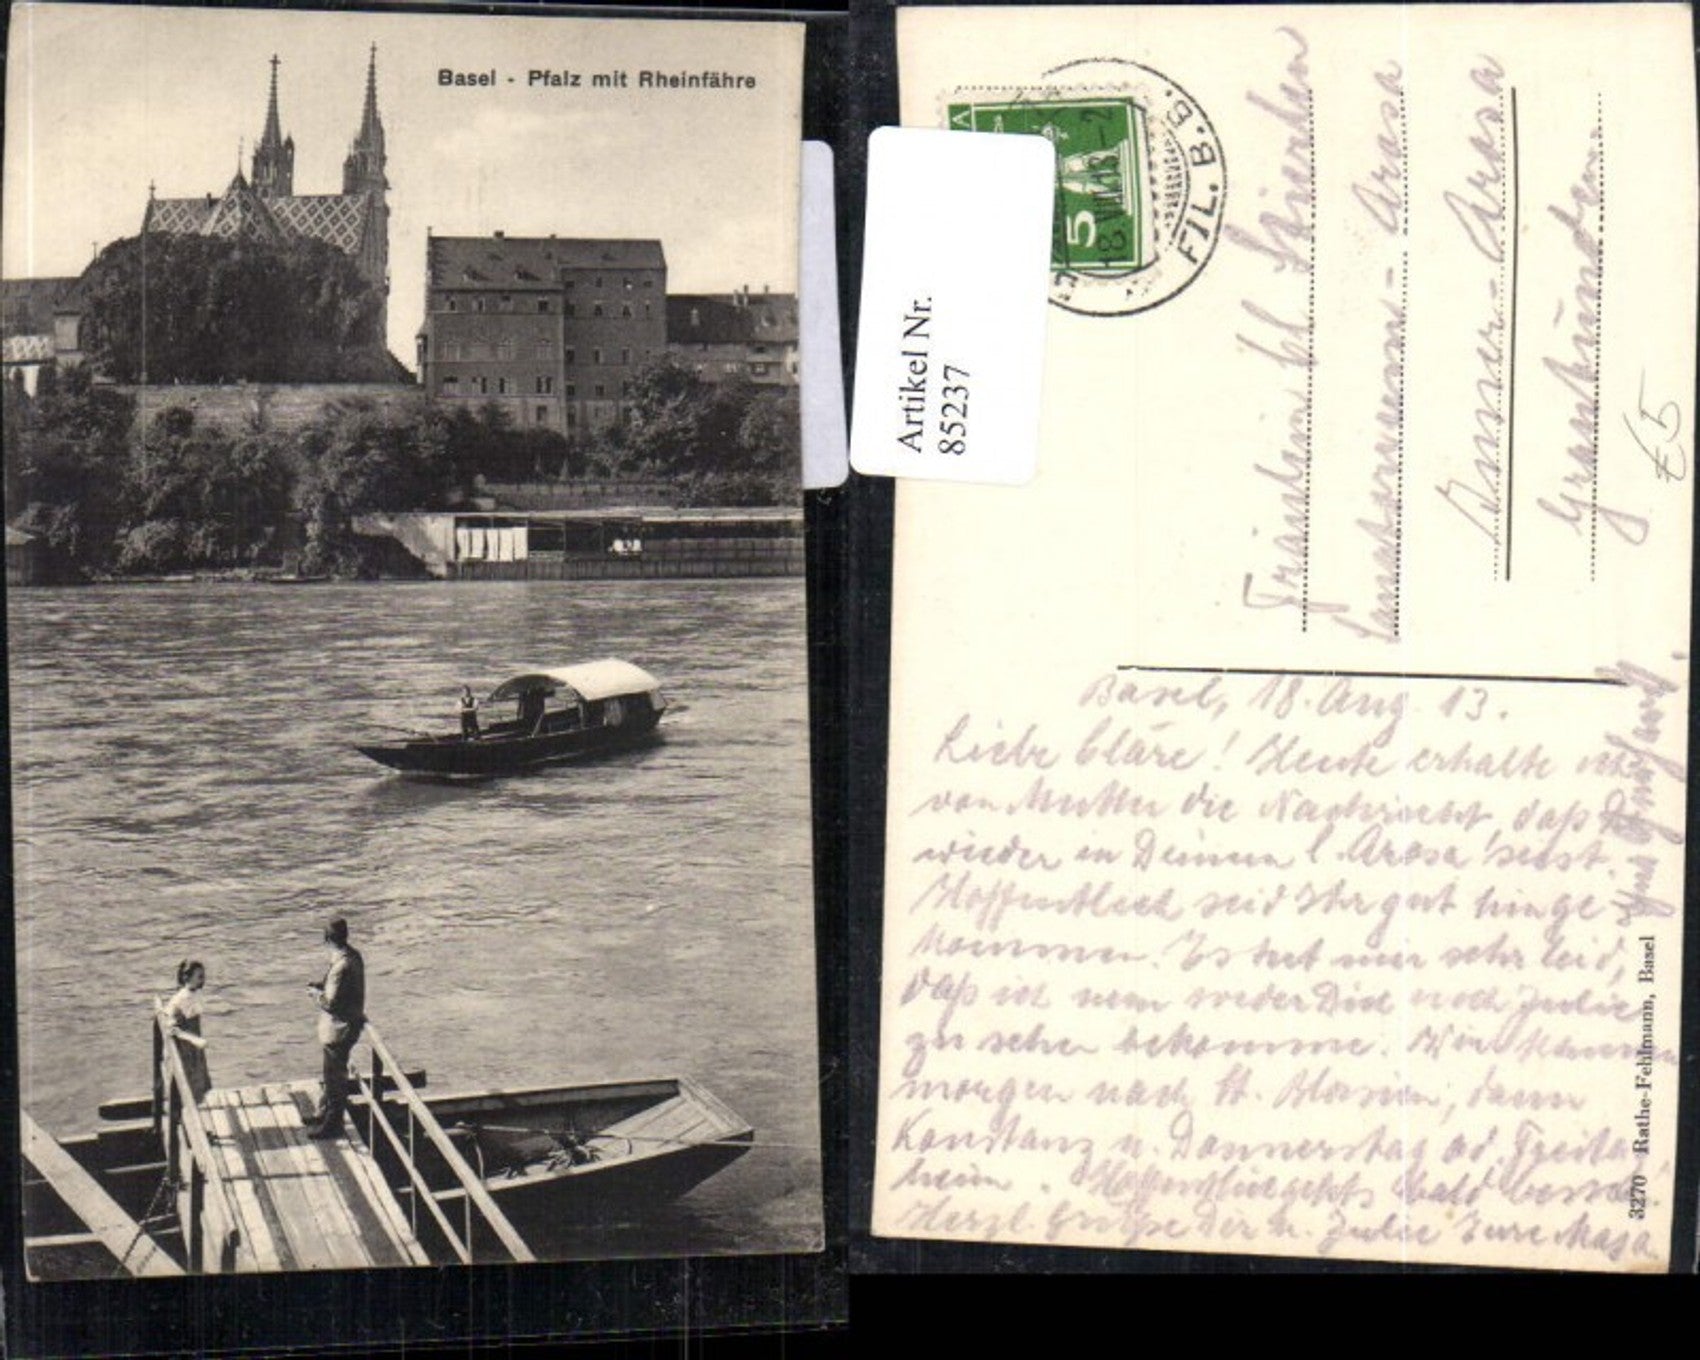 Basel - Pfalz mit Rheinfähre
Artikel Nr.
85237
5
FIL. B. B.
Fräulein Cl.
Arosa
Inner-Arosa
Graubünden
€5
Basel, 18. Aug. 13.
Liebe Cläre! Heute erhalte ich
von Mutter die Nachricht, daß Du
wieder in Deinem l. Arosa seist.
Hoffentlich seid Ihr gut hinge-
kommen. Es tut mir sehr leid,
daß ich nun weder Dich noch Julie
zu sehen bekomme. Wir kommen
morgen nach St. Blasien, dann
Konstanz u. Donnerstag od. Freitag
heim. Hoffentlich geht's bald besser!
Herzl. Grüße Dir u. Julie Eure
3270 Rathe-Fehlmann, Basel